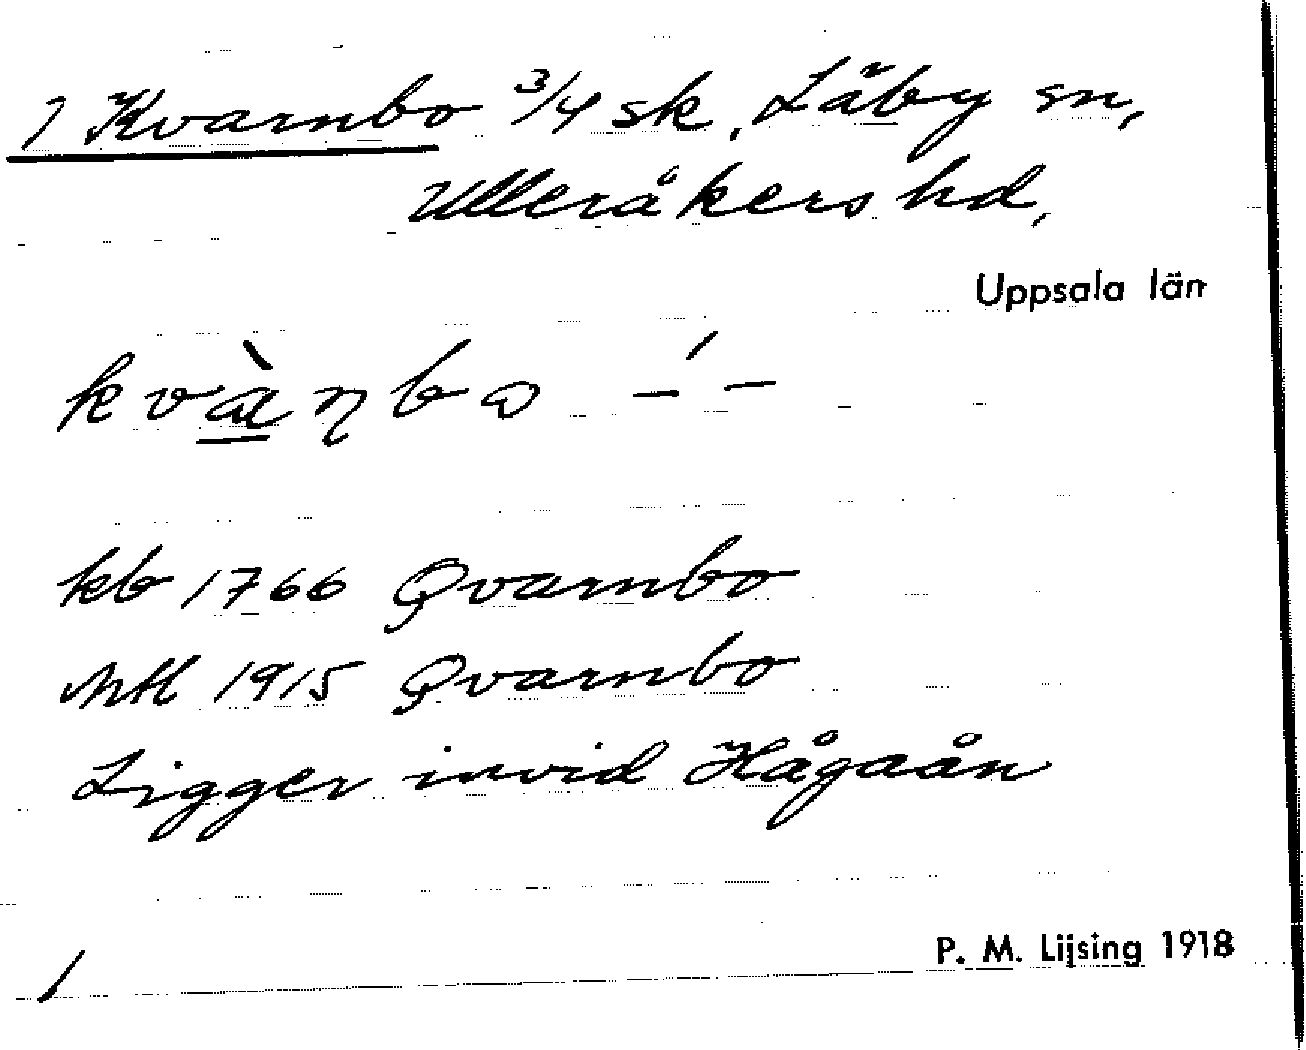 1 Kvarnbo 3/4 sk, Läby sn,
Ulleråkers hd,
Uppsala län
kvàɳbo –́ –
kb 1766 Qvarnbo
Mtl 1915 Qvarnbo
Ligger invid Hågaån
P. M. Lijsing 1918
1